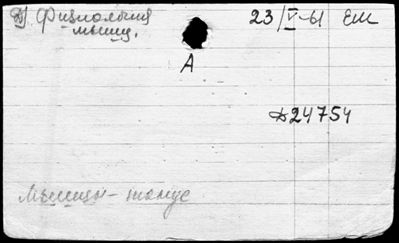 Д) Физиология 23/V-61 ЕМ
мышц.
А
Д24754
Мышцы - тонус